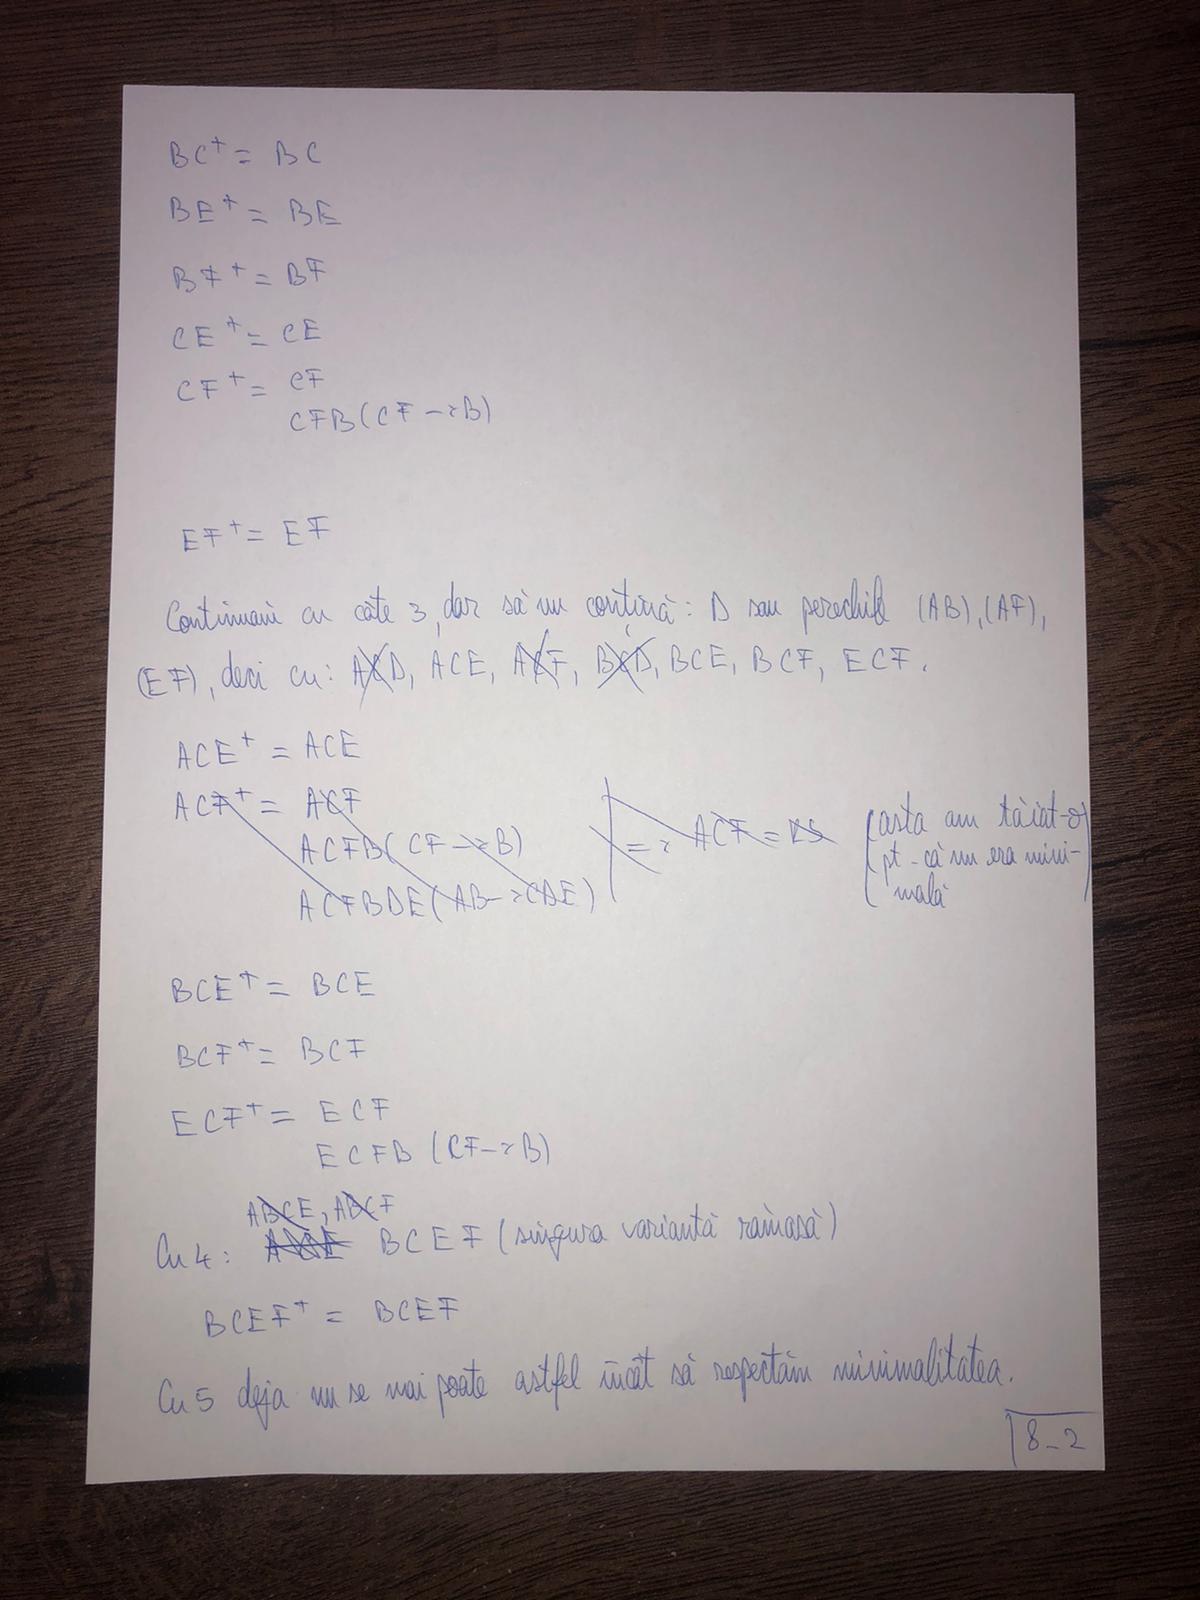 BC+ = BC
BE+ = BE
BF+ = BF
CE+ = CE
CF+ = CF
CFB (CF->B)
EF+ = EF
Continuăm cu câte 3, dar să nu conțină: D sau perechile (AB), (AF),
(EF), deci cu: ACD, ACE, ACF, BCD, BCE, BCF, ECF.
ACE+ = ACE
ACF+ = ACF
ACFB (CF->B) => ACF = (asta am tăiat-o
ACFBDE (AB->CDE) pt. că nu era mini-
mală)
BCE+ = BCE
BCF+ = BCF
ECF+ = ECF
ECFB (CF->B)
ABCE, ABCF
Cu 4: BCEF (singura variantă rămasă)
BCEF+ = BCEF
Cu 5 deja nu se mai poate astfel încât să respectăm minimalitatea.
8-2